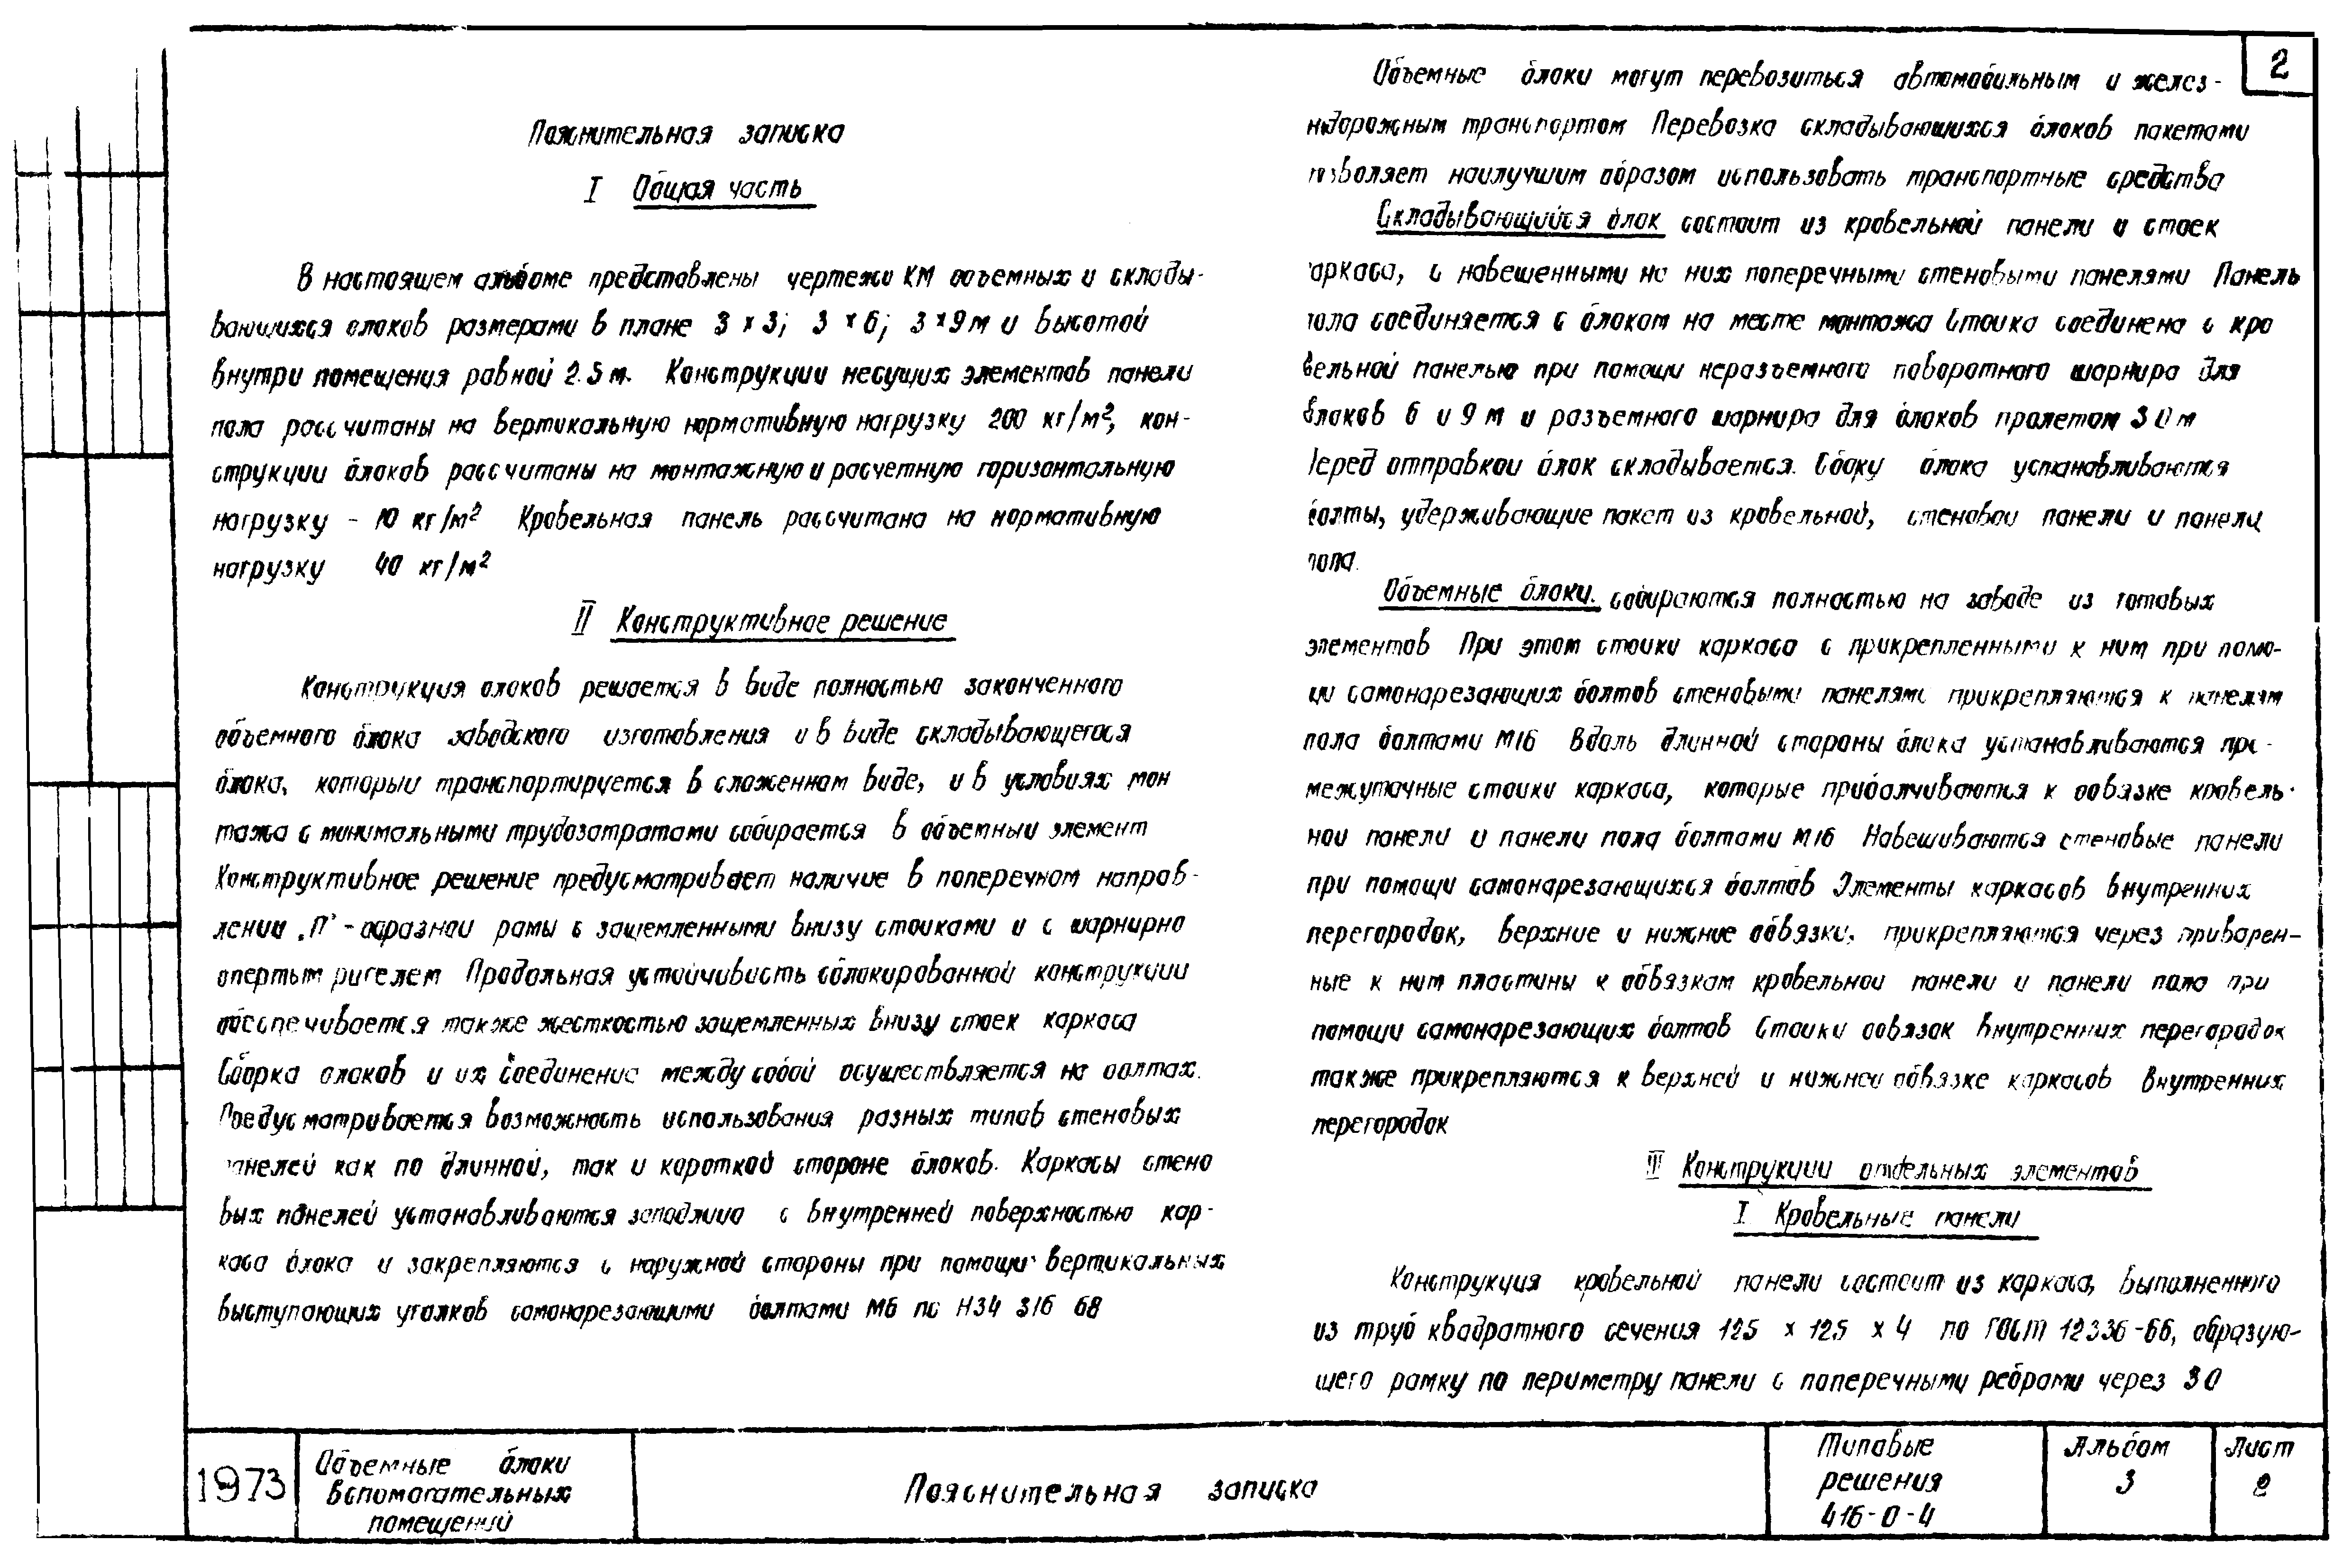 2
Пояснительная записка
I Общая часть
В настоящем альбоме представлены чертежи КМ объемных и склады-
вающихся блоков размерами в плане 3 х 3; 3 х 6; 3 х 9 м и высотой
внутри помещения равной 2.5 м. Конструкции несущих элементов панели
пола рассчитаны на вертикальную нормативную нагрузку 200 кг/м², кон-
струкции блоков рассчитаны на монтажную и расчетную горизонтальную
нагрузку - 10 кг/м² Кровельная панель рассчитана на нормативную
нагрузку 40 кг/м²
II Конструктивное решение
Конструкция блоков решается в виде полностью законченного
объемного блока заводского изготовления и в виде складывающегося
блока, который транспортируется в сложенном виде, и в условиях мон
тажа с минимальными трудозатратами собирается в объемный элемент
Конструктивное решение предусматривает наличие в поперечном направ-
лении „П" - образной рамы с защемленными внизу стойками и с шарнирно
опертым ригелем Продольная устойчивость сблокированной конструкции
обеспечивается также жесткостью защемленных внизу стоек каркаса
Сборка блоков и их соединение между собой осуществляется на болтах.
Предусматривается возможность использования разных типов стеновых
панелей как по длинной, так и короткой стороне блоков. Каркасы стено
вых панелей устанавливаются заподлицо с внутренней поверхностью кар-
каса блока и закрепляются с наружной стороны при помощи вертикальных
выступающих уголков самонарезающими болтами М6 по Н34 316 68
Объемные блоки могут перевозиться автомобильным и желез-
нодорожным транспортом Перевозка складывающихся блоков пакетами
позволяет наилучшим образом использовать транспортные средства
Складывающийся блок состоит из кровельной панели и стоек
каркаса, с навешенными на них поперечными стеновыми панелями Панель
пола соединяется с блоком на месте монтажа Стойка соединена с кро
вельной панелью при помощи неразъемного поворотного шарнира для
блоков 6 и 9 м и разъемного шарнира для блоков пролетом 3 0 м
Перед отправкой блок складывается. Сбоку блока устанавливаются
болты, удерживающие пакет из кровельной, стеновой панели и панели
пола.
Объемные блоки. собираются полностью на заводе из готовых
элементов При этом стойки каркаса с прикрепленными к ним при помо-
щи самонарезающих болтов стеновыми панелями прикрепляются к панелям
пола болтами М16 Вдоль длинной стороны блока устанавливаются про-
межуточные стойки каркаса, которые прибалчиваются к обвязке кровель-
ной панели и панели пола болтами М16 Навешиваются стеновые панели
при помощи самонарезающихся болтов Элементы каркасов внутренних
перегородок, верхние и нижние обвязки, прикрепляются через приварен-
ные к ним пластины к обвязкам кровельной панели и панели пола при
помощи самонарезающих болтов Стойки обвязок внутренних перегородок
также прикрепляются к верхней и нижней обвязке каркасов внутренних
перегородок
III Конструкции отдельных элементов
I Кровельные панели
Конструкция кровельной панели состоит из каркаса, выполненного
из труб квадратного сечения 125 х 125 х 4 по ГОСТ 12336-66, образую-
щего рамку по периметру панели с поперечными ребрами через 3 0
1973
Объемные блоки
вспомогательных
помещений
Пояснительная записка
Типовые
решения
416-0-4
Альбом
3
Лист
2